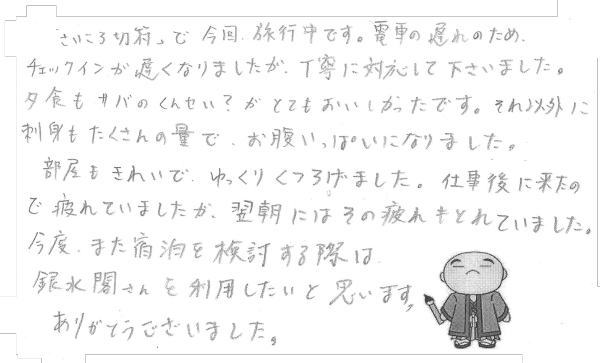 「さいころ切符」で今回、旅行中です。電車の遅れのため、
チェックインが遅くなりましたが、丁寧に対応して下さいました。
夕食もサバのくんせい？がとてもおいしかったです。それ以外に
刺身もたくさんの量で、お腹いっぱいになりました。
部屋もきれいで、ゆっくりくつろげました。仕事後に来たの
で疲れていましたが、翌朝にはその疲れもとれていました。
今度、また宿泊を検討する際は、
銀水閣さんを利用したいと思います。
ありがとうございました。